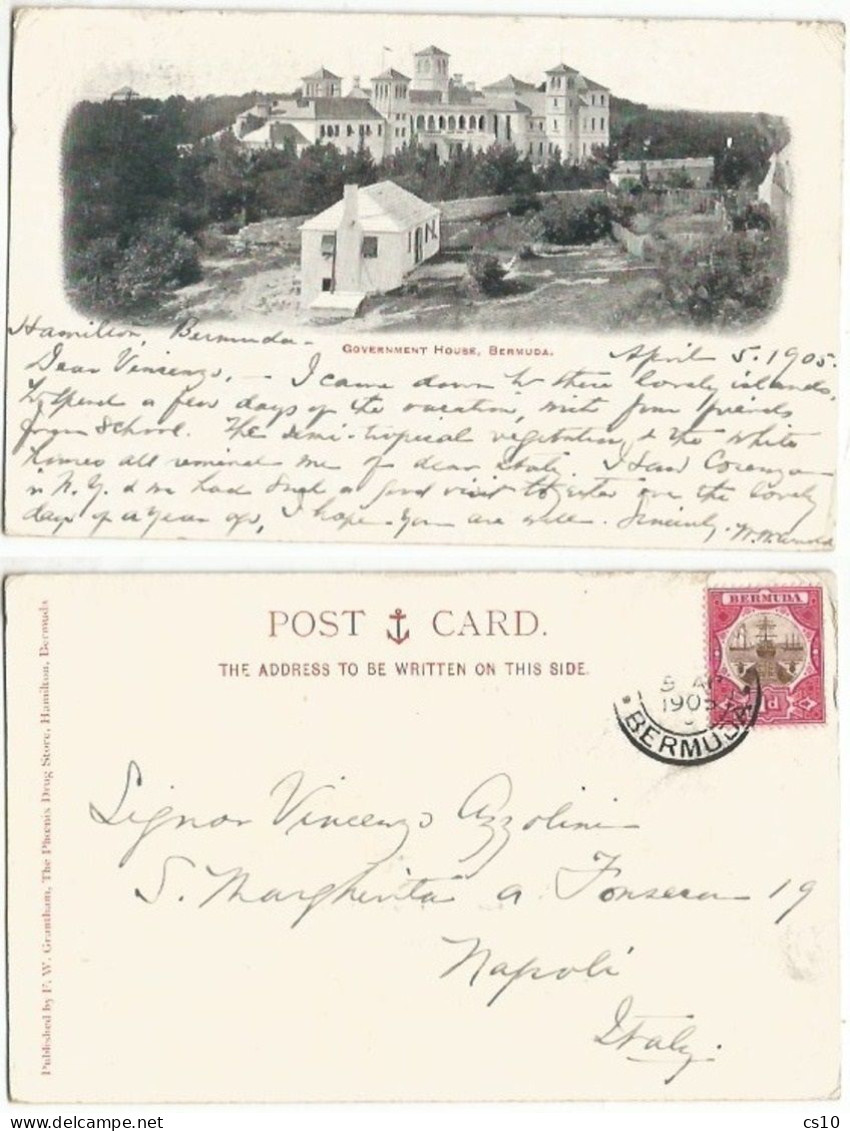 Government House, Bermuda.
Hamilton, Bermuda - April 5. 1905.
Dear Vincenzo, - I came down to these lovely islands,
to spend a few days of the vacation, with four friends
from school. The semi-tropical vegetation & the white
homes all remind me of dear Italy. I saw
in N.Y. & we had such a good visit together over the lovely
days of a year ago, I hope you are well. Sincerely.
POST CARD.
THE ADDRESS TO BE WRITTEN ON THIS SIDE.
BERMUDA
1905
BERMUDA
Signor Vincenzo Azzolini
S. Margherita a Fonseca 19
Napoli
Italy.
Published by F. W. Grantham, The Phoenix Drug Store, Hamilton, Bermuda
cs10